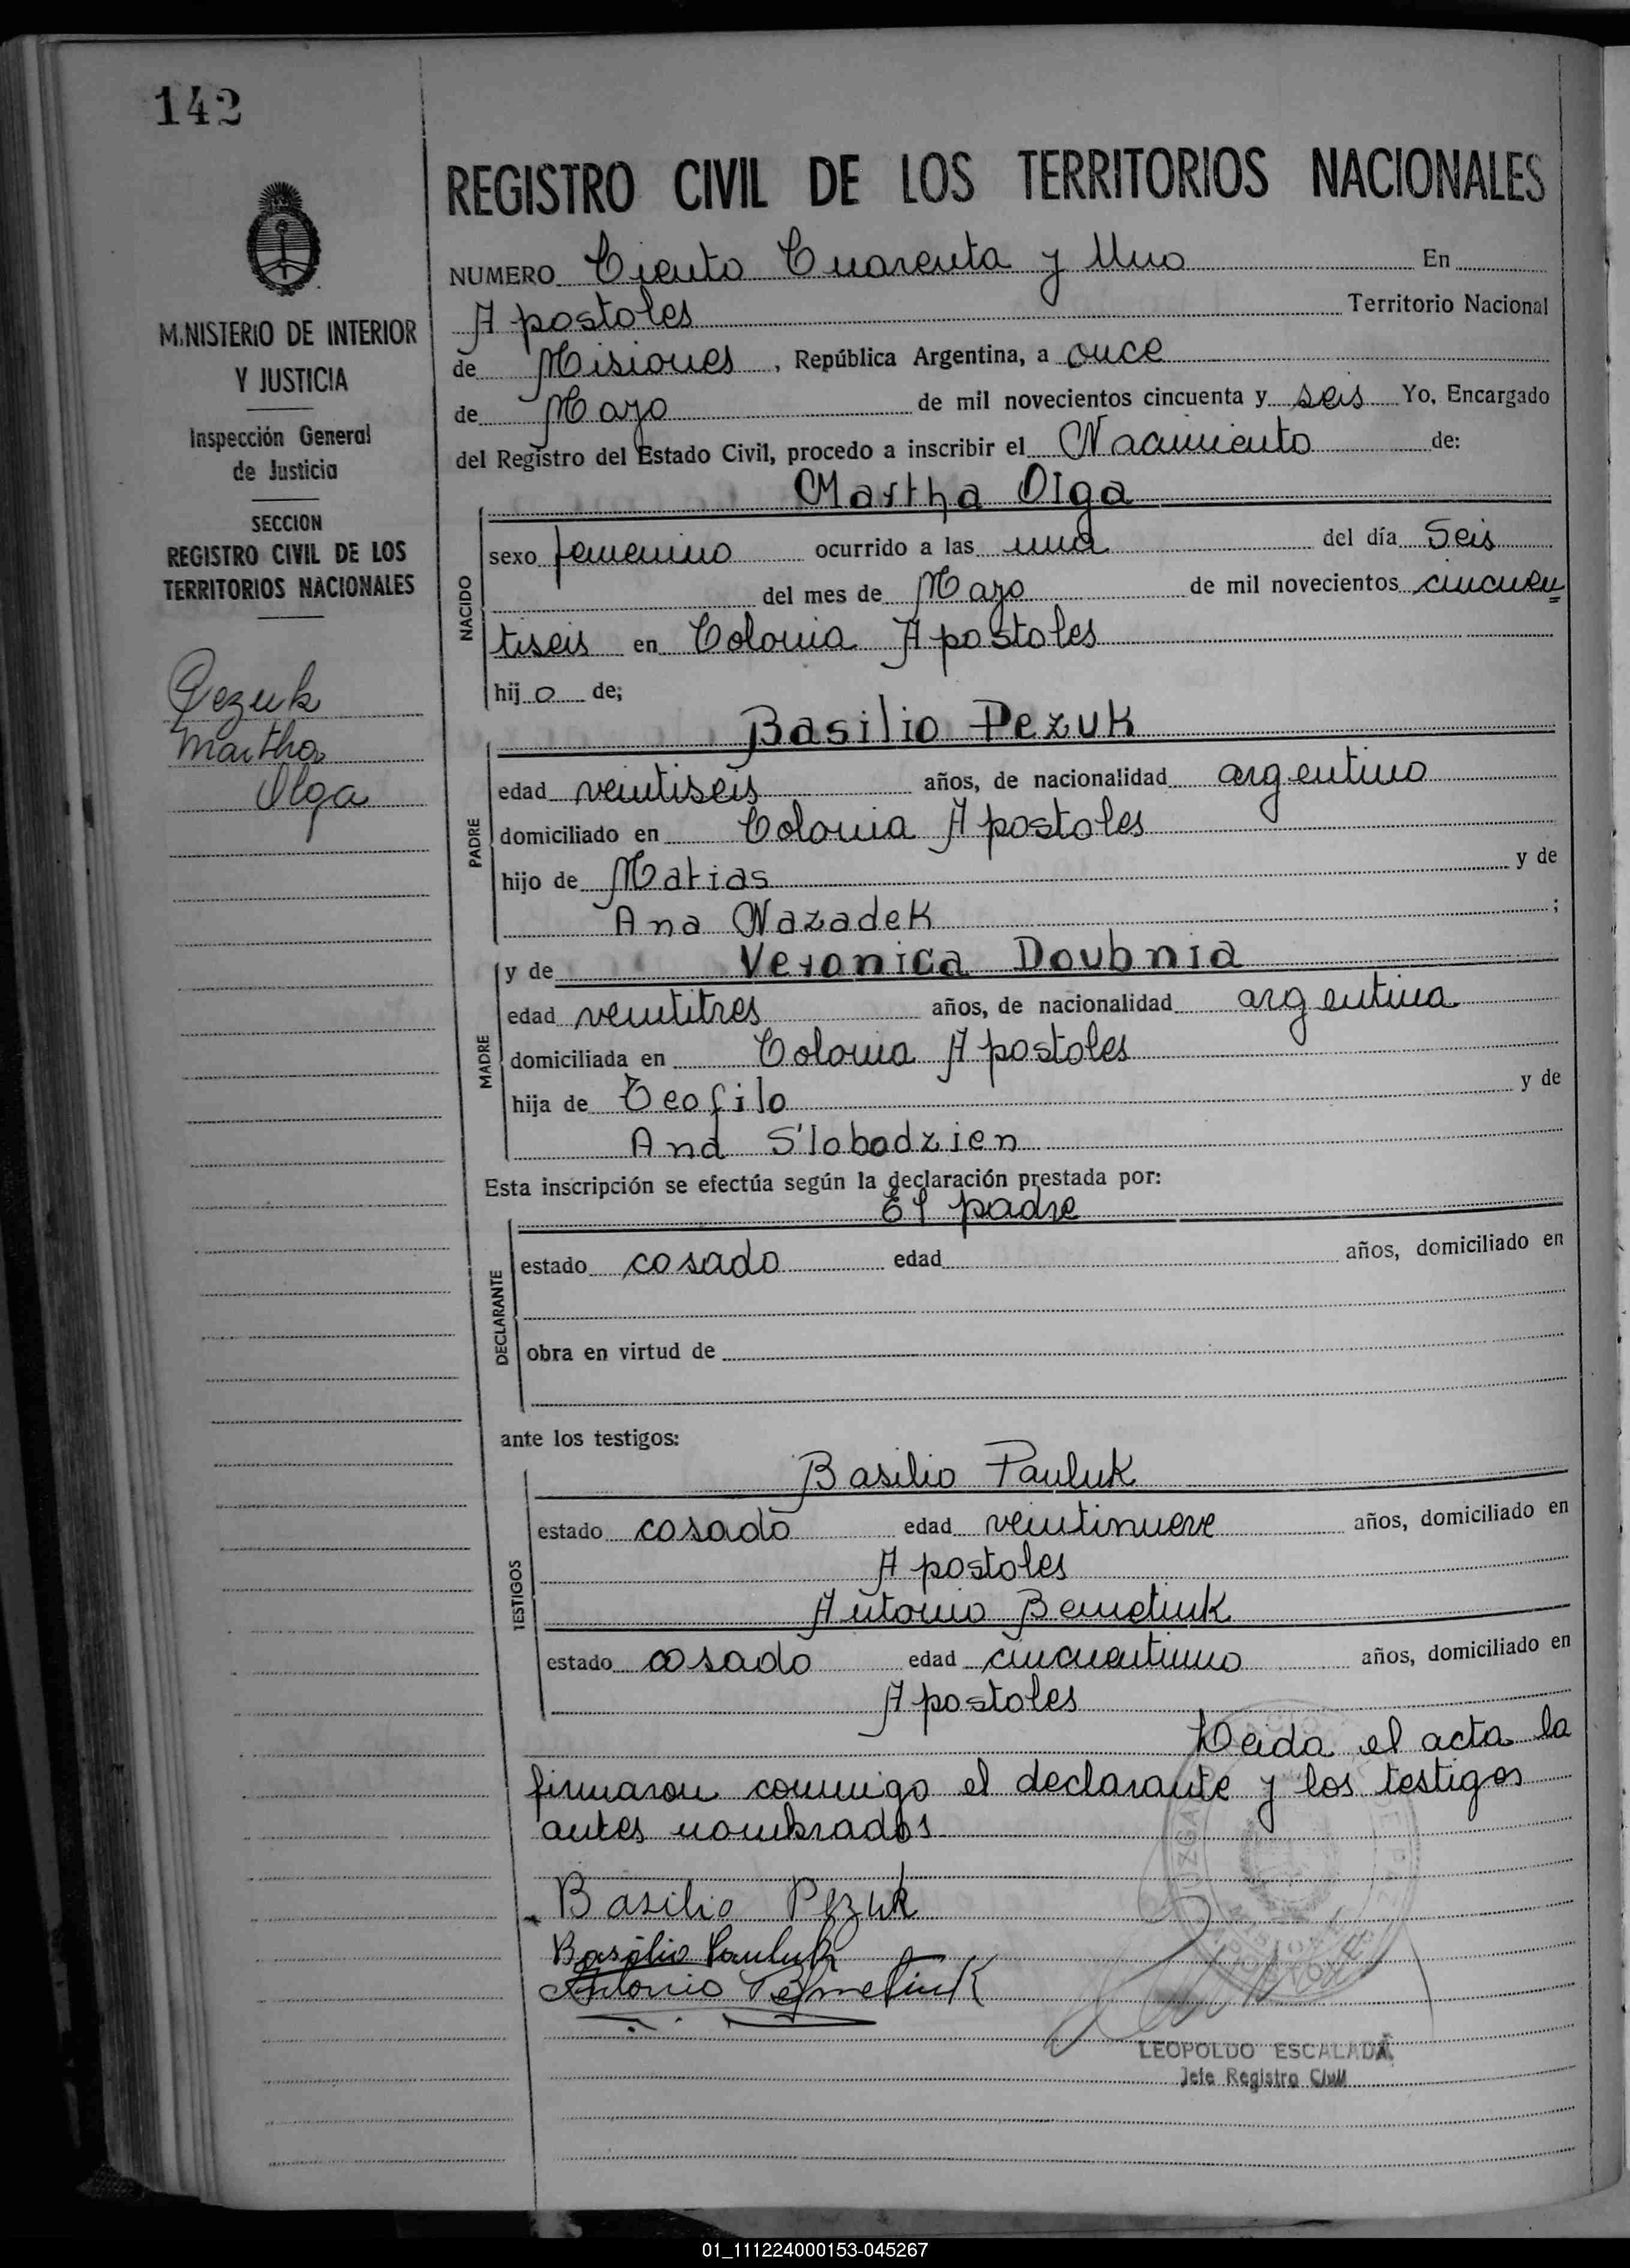 142
REGISTRO CIVIL DE LOS TERRITORIOS NACIONALES
M.NISTERIO DE INTERIOR
Y JUSTICIA
Inspección General
de Justicia
SECCION
REGISTRO CIVIL DE LOS
TERRITORIOS NACIONALES
Pezuk
Martha
Olga
NUMERO Ciento Cuarenta y Uno En
Apostoles Territorio Nacional
de Misiones, República Argentina, a once
de Mayo de mil novecientos cincuenta y seis Yo, Encargado
del Registro del Estado Civil, procedo a inscribir el Nacimiento de:
NACIDO
Martha Olga
sexo femenino ocurrido a las una del día Seis
del mes de Mayo de mil novecientos cincuen
tiseis en Colonia Apostoles
hijo de;
PADRE
Basilio Pezuk
edad veintiseis años, de nacionalidad argentino
domiciliado en Colonia Apostoles
hijo de Matias y de
Ana Nazadek ;
MADRE
y de Veronica Doubnia
edad veintitres años, de nacionalidad argentina
domiciliada en Colonia Apostoles
hija de Teofilo y de
Ana Slobodzien
Esta inscripción se efectúa según la declaración prestada por:
DECLARANTE
El padre
estado casado edad años, domiciliado en
obra en virtud de
ante los testigos:
TESTIGOS
Basilio Pauluk
estado casado edad veintinueve años, domiciliado en
Apostoles
Antonio Bemetiuk
estado casado edad cincuentiuno años, domiciliado en
Apostoles
Leida el acta la
firmaron conmigo el declarante y los testigos
antes nombrados
Basilio Pezuk
Basilio Pauluk
Antonio
LEOPOLDO ESCALADA
Jefe Registro Civil
01_111224000153-045267